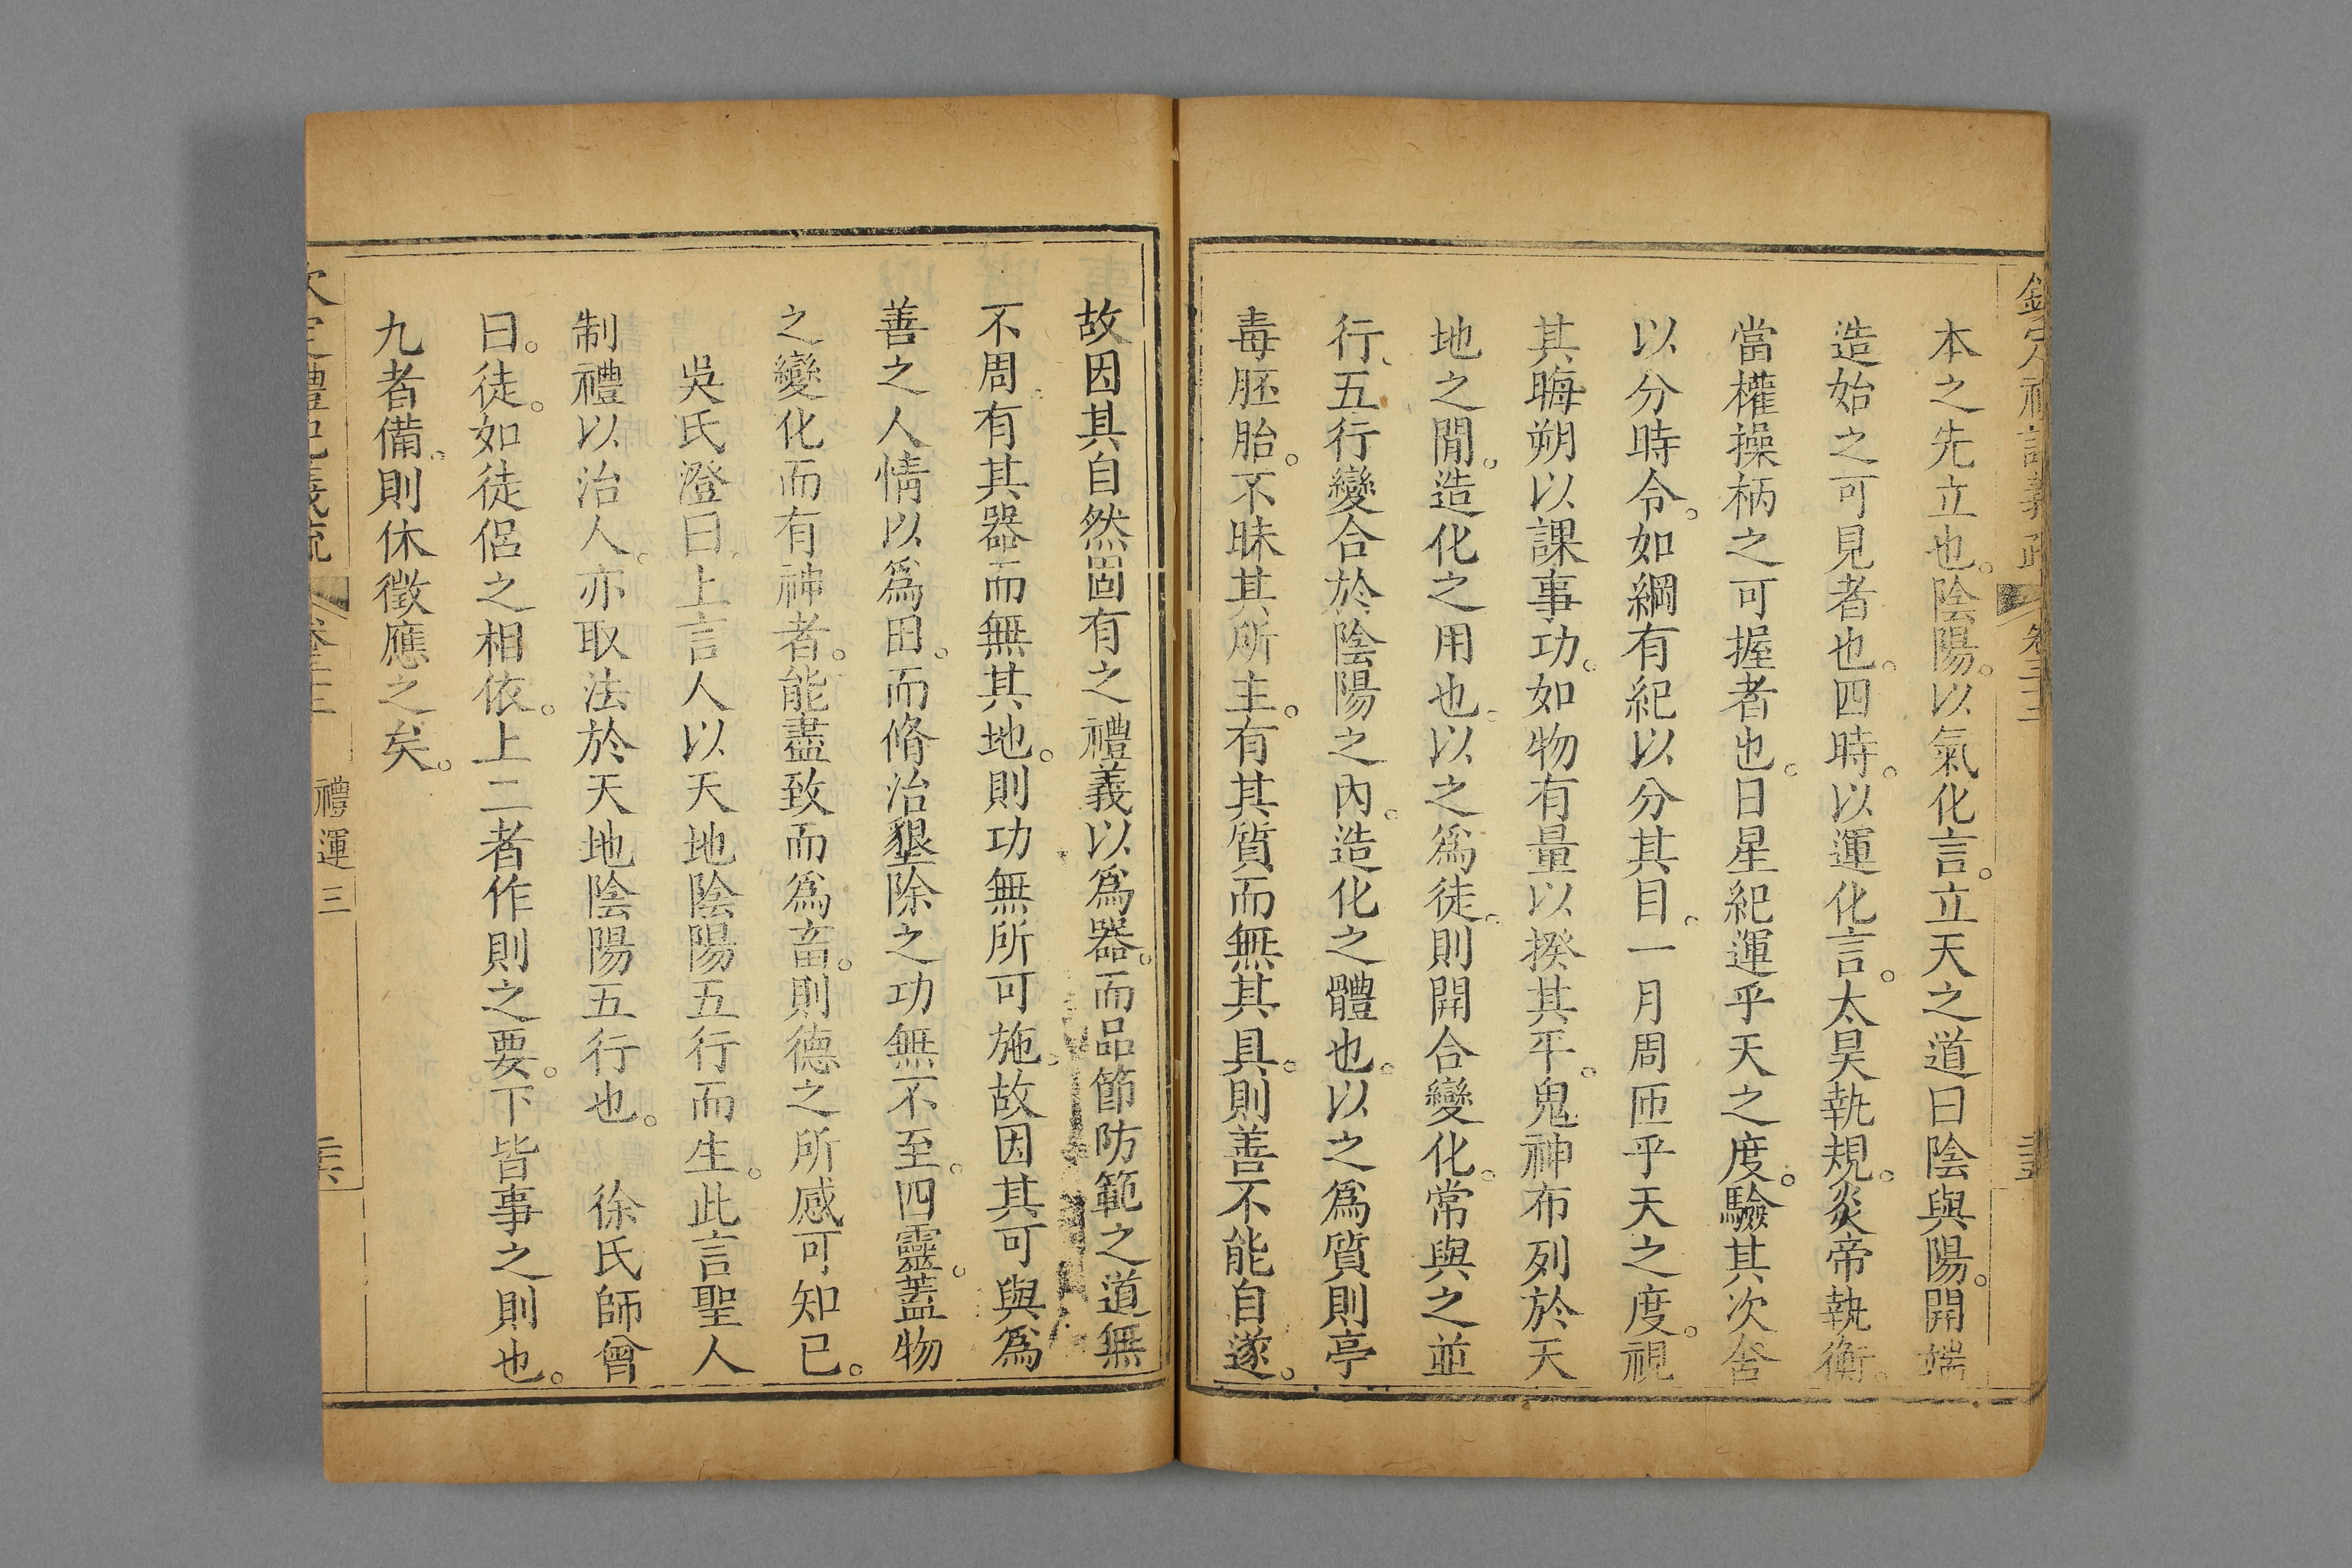 本之先立也。陰陽。以氣化言。立天之道曰陰與陽。開端
造始之可見者也。四時。以運化言。太昊執規。炎帝執衡。
當權操柄之可握者也。日星紀運乎天之度。驗其次舍
以分時令。如綱有紀以分其目。一月周匝乎天之度。視
其晦朔以課事功。如物有量以揆其平。鬼神布列於天
地之閒。造化之用也。以之爲徒。則開合變化。常與之並
行。五行變合於陰陽之內。造化之體也。以之爲質則亭
毒胚胎。不昧其所主。有其質而無其具。則善不能自遂。
故因其自然固有之禮義以爲器。而品節防範之道無
不周。有其器而無其地。則功無所可施。故因其可與爲
善之人情以爲田。而脩治墾除之功無不至。四靈。蓋物
之變化而有神者。能盡致而爲畜。則德之所感可知已。
吳氏澄曰。上言人以天地陰陽五行而生。此言聖人
制禮以治人。亦取法於天地陰陽五行也。 徐氏師曾
曰。徒。如徒侶之相依。上二者作則之要。下皆事之則也。
九者備。則休徵應之矣。
禮運三